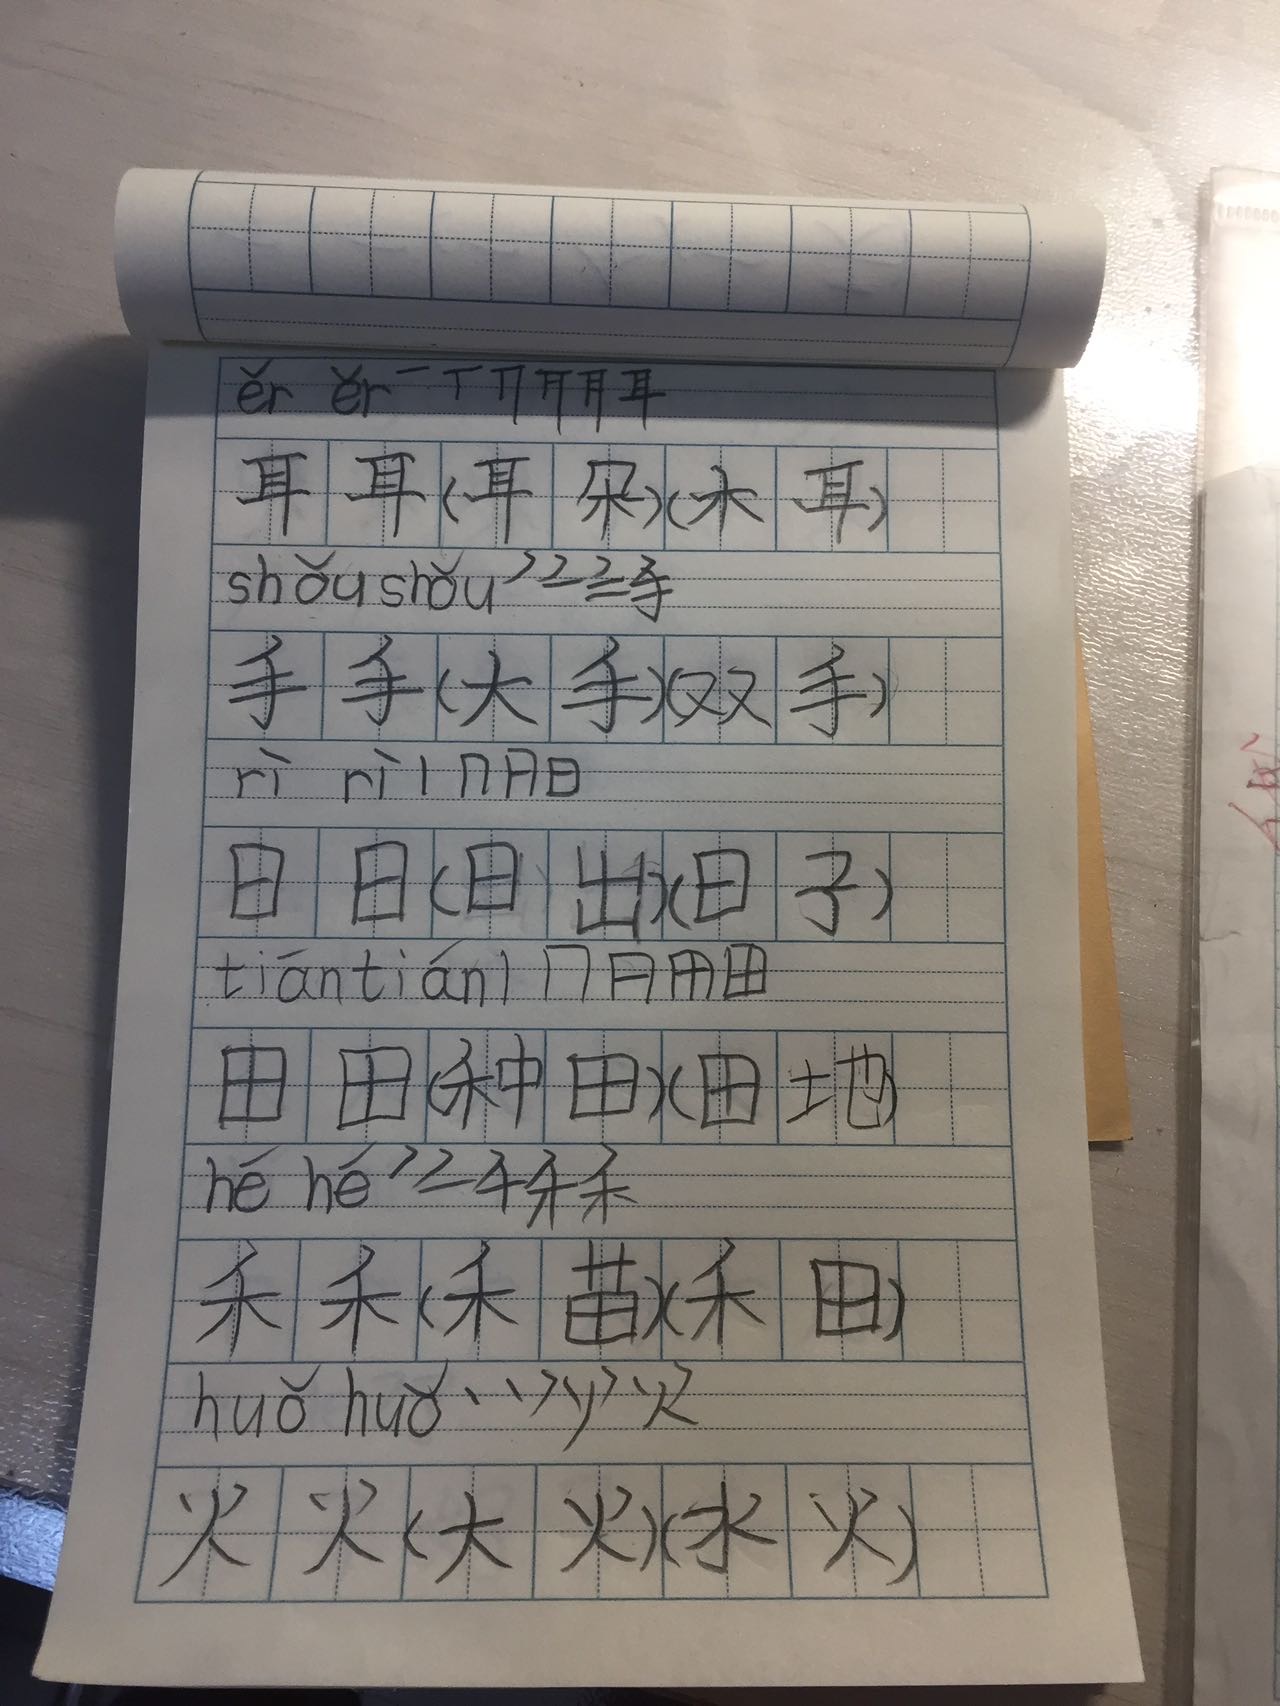 ěr ěr 一 丅
耳 耳 (耳 朵) (木 耳)
shǒu shǒu 一 二 三 手
手 手 (大 手) (双 手)
rì rì 丨 冂 日
日 日 (日 出) (日 子)
tián tián 丨 冂 田
田 田 (种 田) (田 地)
hé hé 禾
禾 禾 (禾 苗) (禾 田)
huǒ huǒ 丶 火
火 火 (大 火) (水 火)